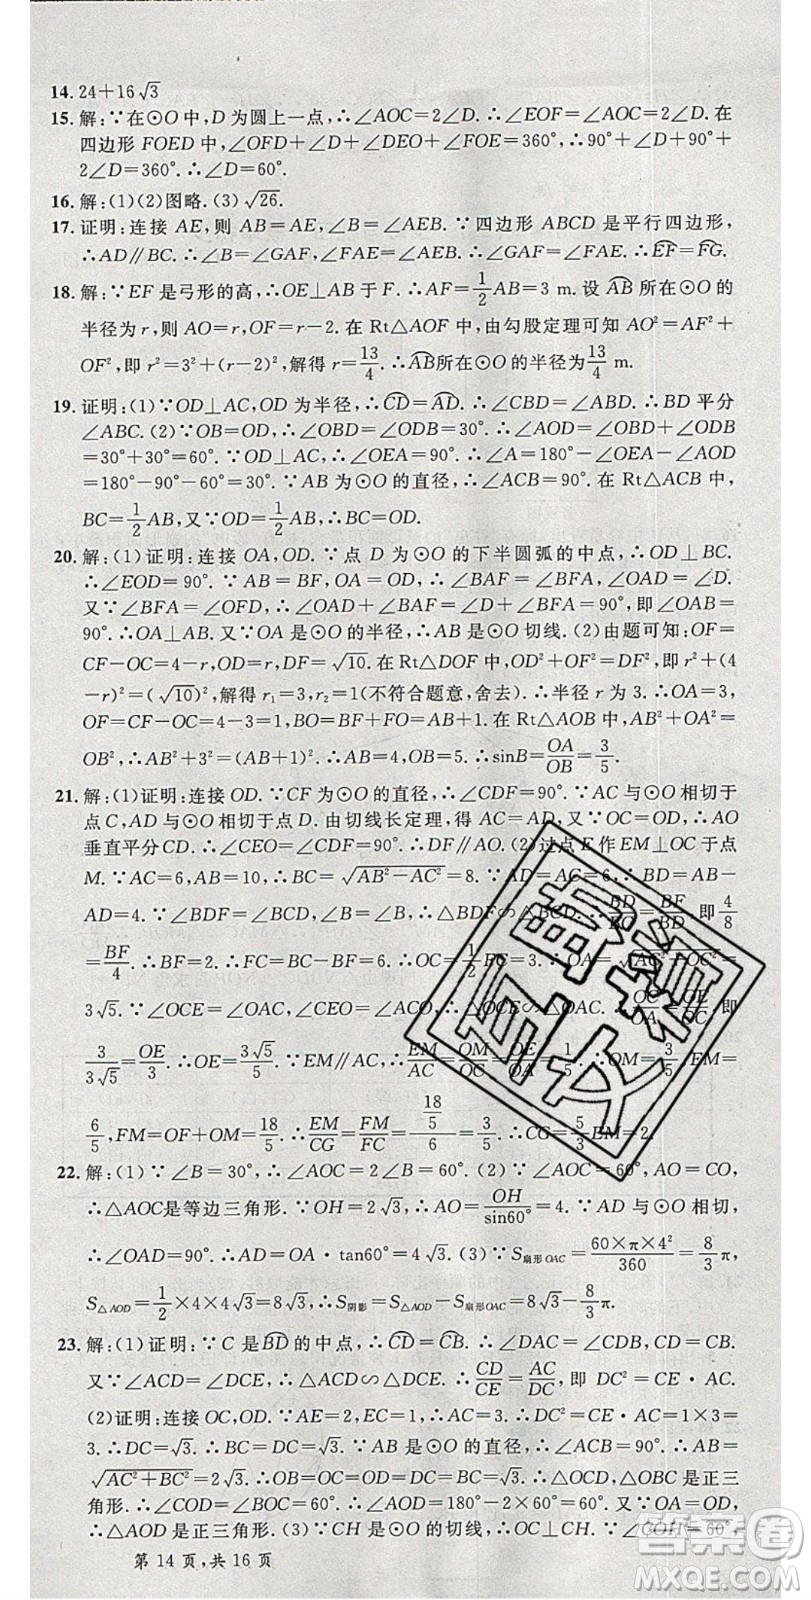 14. 24+16√3
15. 解:∵在⊙O中,D为圆上一点,∴∠AOC=2∠D.∴∠EOF=∠AOC=2∠D.在
四边形FOED中,∠OFD+∠D+∠DEO+∠FOE=360°,∴90°+∠D+90°+
2∠D=360°.∴∠D=60°.
16. 解:(1)(2)图略.(3)√26.
17. 证明:连接AE,则AB=AE,∠B=∠AEB.∵四边形ABCD是平行四边形,
∴AD∥BC.∴∠B=∠GAF,∠FAE=∠AEB.∴∠GAF=∠FAE.∴EF⌒=FG⌒.
18. 解:∵EF是弓形的高,∴OE⊥AB于F.∴AF=1/2AB=3 m.设AB⌒所在⊙O的
半径为r,则AO=r,OF=r-2.在Rt△AOF中,由勾股定理可知AO²=AF²+
OF²,即r²=3²+(r-2)²,解得r=13/4.∴AB⌒所在⊙O的半径为13/4 m.
19. 证明:(1)∵OD⊥AC,OD为半径,∴CD⌒=AD⌒.∴∠CBD=∠ABD.∴BD平分
∠ABC.(2)∵OB=OD,∴∠OBD=∠ODB=30°.∴∠AOD=∠OBD+∠ODB
=30°+30°=60°.∵OD⊥AC,∴∠OEA=90°.∴∠A=180°-∠OEA-∠AOD
=180°-90°-60°=30°.∵AB为⊙O的直径,∴∠ACB=90°.在Rt△ACB中,
BC=1/2AB,又∵OD=1/2AB,∴BC=OD.
20. 解:(1)证明:连接OA,OD.∵点D为⊙O的下半圆弧的中点,∴OD⊥BC.
∴∠EOD=90°.∵AB=BF,OA=OD,∴∠BAF=∠BFA,∠OAD=∠D.
又∵∠BFA=∠OFD,∴∠OAD+∠BAF=∠D+∠BFA=90°,即∠OAB=
90°.∴OA⊥AB.又∵OA是⊙O的半径,∴AB是⊙O切线.(2)由题可知:OF=
CF-OC=4-r,OD=r,DF=√10.在Rt△DOF中,OD²+OF²=DF²,即r²+(4
-r)²=(√10)²,解得r₁=3,r₂=1(不符合题意,舍去).∴半径r为3.∴OA=3,
OF=CF-OC=4-3=1,BO=BF+FO=AB+1.在Rt△AOB中,AB²+OA²=
OB²,∴AB²+3²=(AB+1)².∴AB=4,OB=5.∴sinB=OA/OB=3/5.
21. 解:(1)证明:连接OD.∵CF为⊙O的直径,∴∠CDF=90°.∵AC与⊙O相切于
点C,AD与⊙O相切于点D.由切线长定理,得AC=AD,又∵OC=OD,∴AO
垂直平分CD.∴∠CEO=∠CDF=90°.∴AO∥DF.(2)过点E作EM⊥OC于点
M.∵AC=6,AB=10,∴BC=√(AB²-AC²)=8.∵AC=AD=6,∴BD=AB-
AD=4.∵∠BDF=∠BCD,∠B=∠B,∴△BDF∽△BCD.∴BD/BC=BF/BD.即4/8
=BF/4.∴BF=2.∴FC=BC-BF=6.∴OC=1/2FC=3.∴OA=√(AC²+OC²)=
3√5.∵∠OCE=∠OAC,∠CEO=∠ACO=90°,∴△OCE∽△OAC.∴OC/OA=OE/OC.即
3/(3√5)=OE/3.∴OE=3√5/5.∵EM∥AC,∴EM/AC=OM/OC=OE/OA=1/5.∴OM=3/5,EM=
6/5,FM=OF+OM=18/5.∴EM/CG=FM/FC=(18/5)/6=3/5.∴CG=5/3EM=2.
22. 解:(1)∵∠B=30°,∴∠AOC=2∠B=60°.(2)∵∠AOC=60°,AO=CO,
∴△AOC是等边三角形.∵OH=2√3,∴AO=OH/sin60°=4.∵AD与⊙O相切,
∴∠OAD=90°.∴AD=AO·tan60°=4√3.(3)∵S扇形OAC=(60×π×4²)/360=8/3π,
S△AOD=1/2×4×4√3=8√3,∴S阴影=S△AOD-S扇形OAC=8√3-8/3π.
23. 解:(1)证明:∵C是BD⌒的中点,∴CD⌒=CB⌒.∴∠DAC=∠CDB,CD=CB.
又∵∠ACD=∠DCE,∴△ACD∽△DCE.∴CD/CE=AC/DC,即DC²=CE·AC.
(2)证明:连接OC,OD.∵AE=2,EC=1,∴AC=3.∴DC²=CE·AC=1×3=
3.∴DC=√3.∴BC=DC=√3.∵AB是⊙O的直径,∴∠ACB=90°.∴AB=
√(AC²+BC²)=2√3.∴OB=OC=OD=√3.∴△OCD,△OBC是正三
角形.∴∠COD=∠BOC=60°.∴∠AOD=180°-2×60°=60°.又∵OA=OD,
∴△AOD是正三角形.(3)∵CH是⊙O的切线,∴OC⊥CH.∵∠COH=60°,
第14页,共16页
答案卷
MXQE.COM